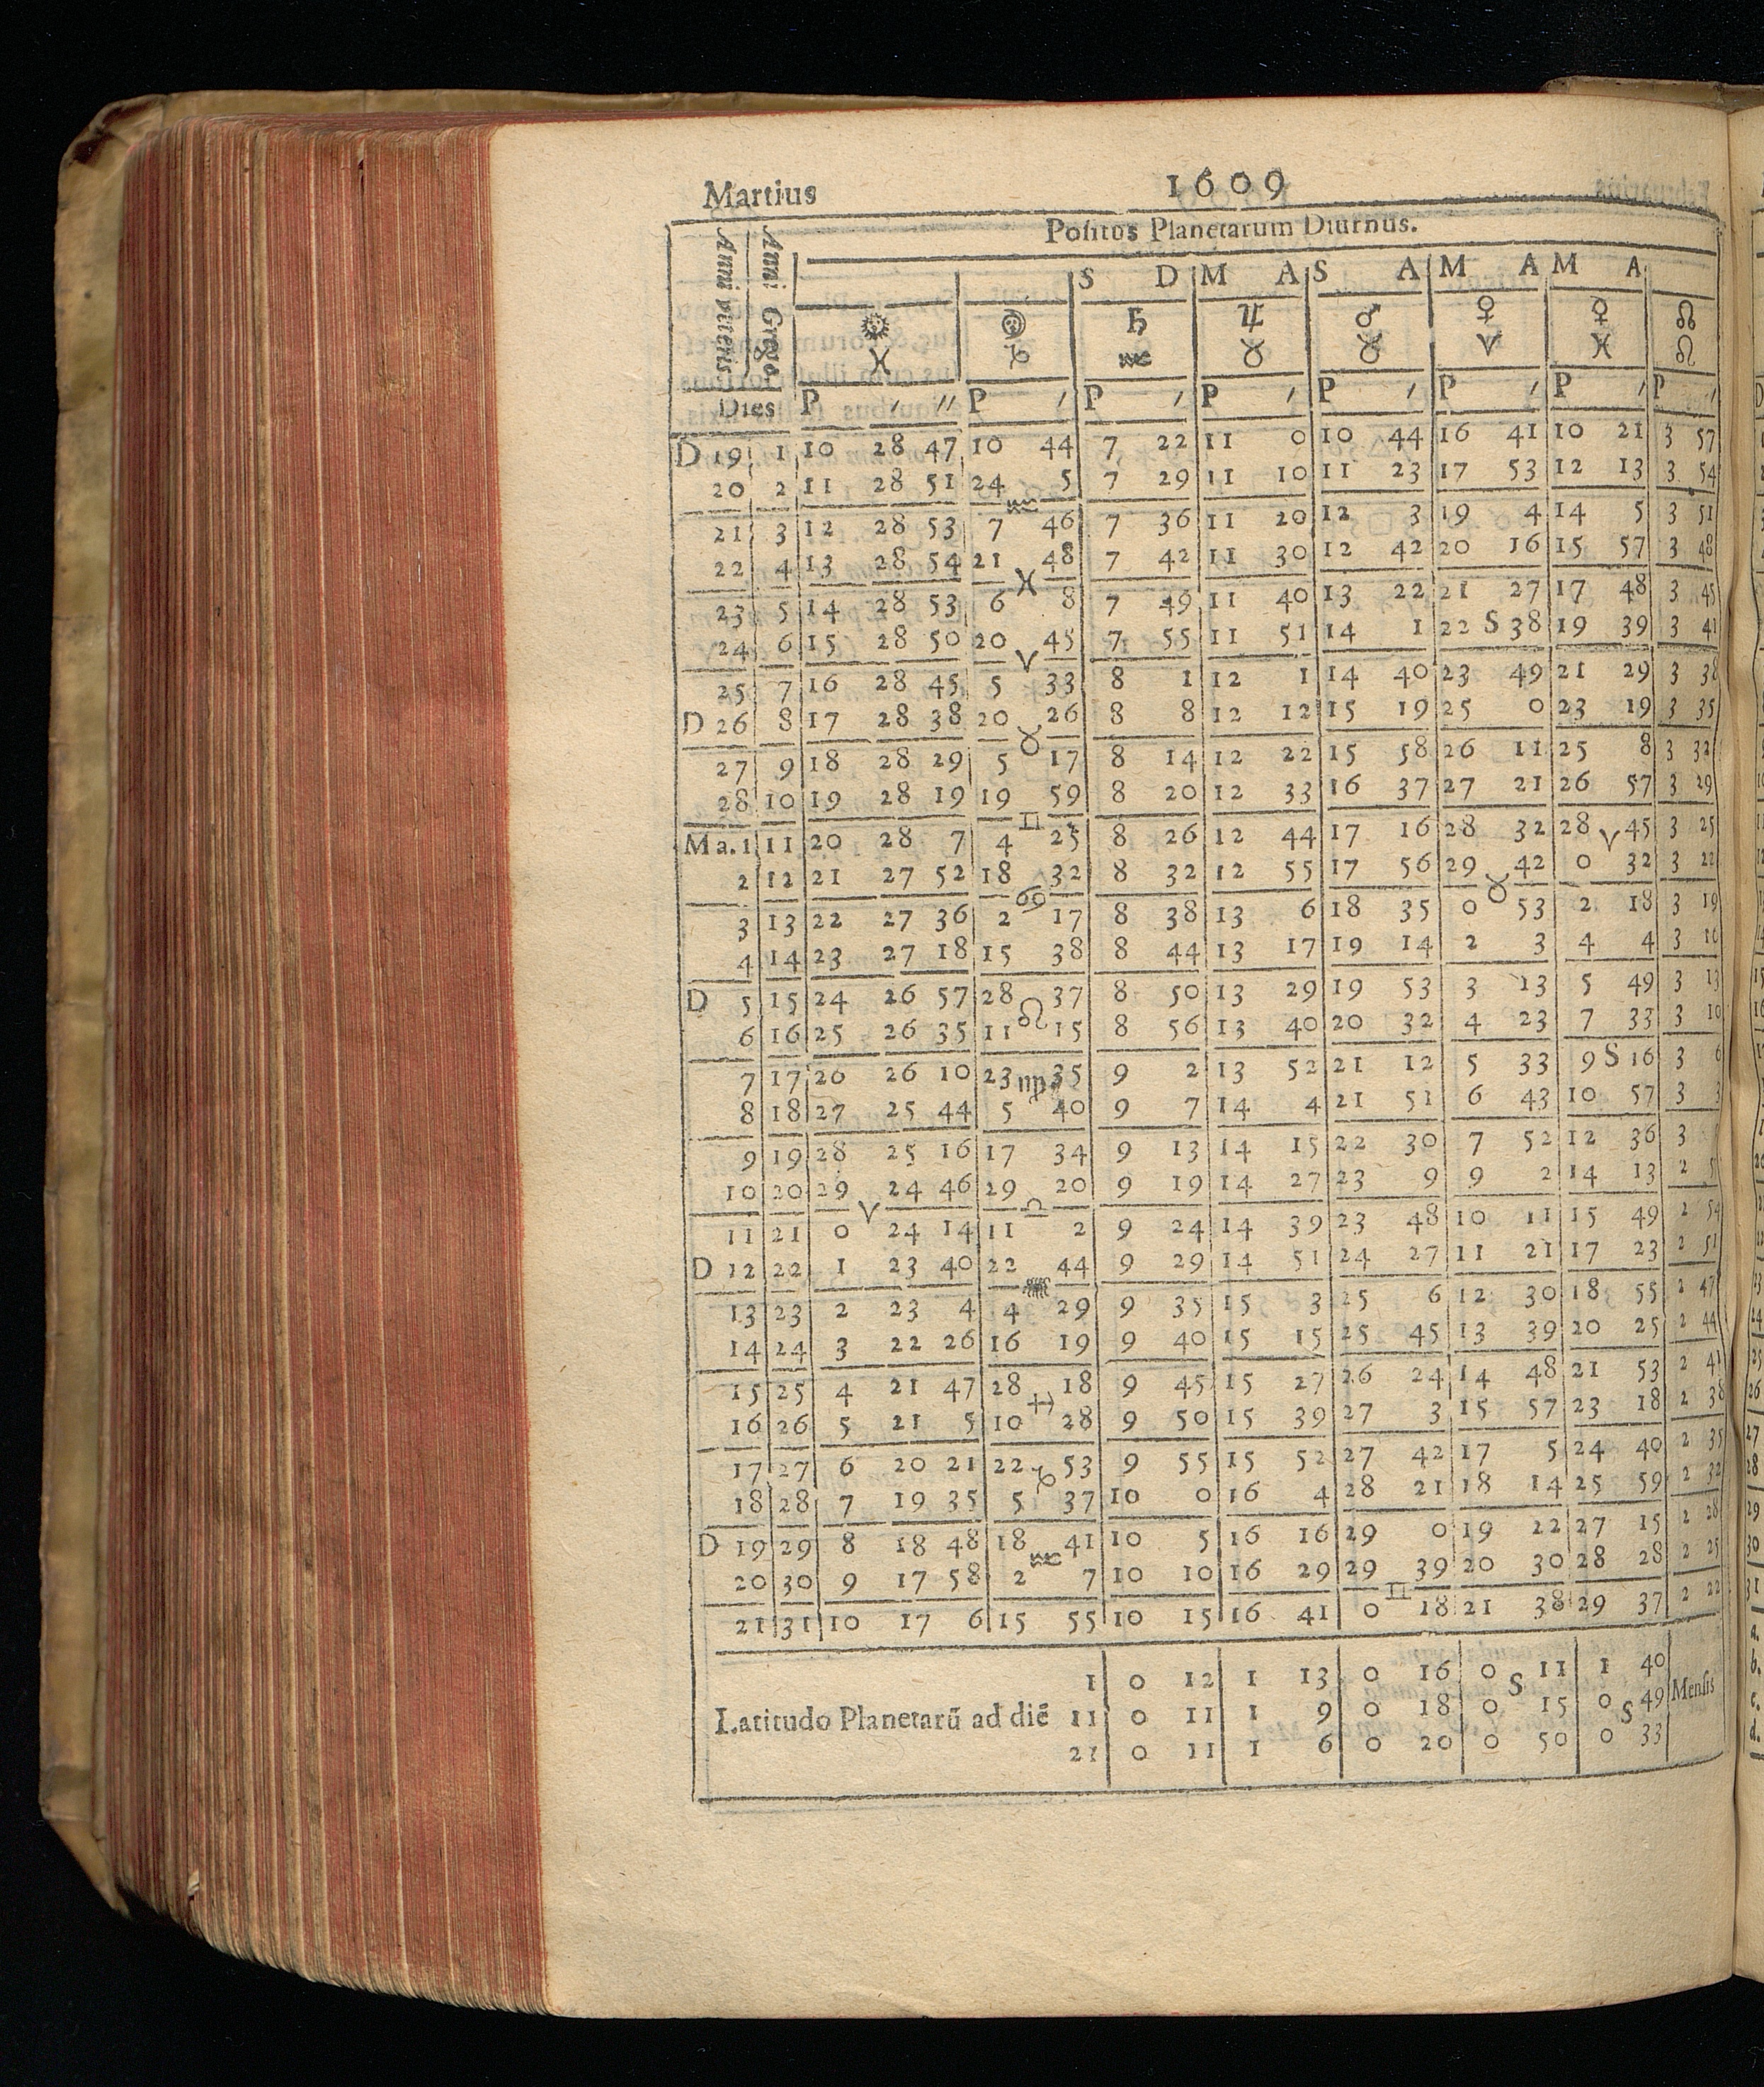 Martius 1609
Positus Planetarum Diurnus.
Anni veteris. Anni Grego.
S D M A S A M A M A
☉ ☽ ♄ ♃ ♂ ♀ ♀ ☊
♓ ♑ ♒ ♉ ♉ ♈ ♓ ♌
Dies P ′ ″ P ′ P ′ P ′ P ′ P ′ P ′ P ′
D 19 1 10 28 47 10 44 7 22 11 0 10 44 16 41 10 21 3 57
20 2 11 28 51 24 5 7 29 11 10 11 23 17 53 12 13 3 54
♒
21 3 12 28 53 7 46 7 36 11 20 12 3 19 4 14 5 3 51
22 4 13 28 54 21 48 7 42 11 30 12 42 20 16 15 57 3 48
♓
23 5 14 28 53 6 8 7 49 11 40 13 22 21 27 17 48 3 45
24 6 15 28 50 20 45 7 55 11 51 14 1 22 S 38 19 39 3 41
♈
25 7 16 28 45 5 33 8 1 12 1 14 40 23 49 21 29 3 38
D 26 8 17 28 38 20 26 8 8 12 12 15 19 25 0 23 19 3 35
♉
27 9 18 28 29 5 17 8 14 12 22 15 58 26 11 25 8 3 32
28 10 19 28 19 19 59 8 20 12 33 16 37 27 21 26 57 3 29
♊
Ma. 1 11 20 28 7 4 25 8 26 12 44 17 16 28 32 28 ♈ 45 3 25
2 12 21 27 52 18 32 8 32 12 55 17 56 29 42 0 32 3 22
♋ ♉
3 13 22 27 36 2 17 8 38 13 6 18 35 0 53 2 18 3 19
4 14 23 27 18 15 38 8 44 13 17 19 14 2 3 4 4 3 16
D 5 15 24 26 57 28 37 8 50 13 29 19 53 3 13 5 49 3 13
♌
6 16 25 26 35 11 15 8 56 13 40 20 32 4 23 7 33 3 10
7 17 26 26 10 23 ♍ 35 9 2 13 52 21 12 5 33 9 S 16 3 6
8 18 27 25 44 5 40 9 7 14 4 21 51 6 43 10 57 3 3
9 19 28 25 16 17 34 9 13 14 15 22 30 7 52 12 36 3
10 20 29 24 46 29 20 9 19 14 27 23 9 9 2 14 13 2
♈ ♎
11 21 0 24 14 11 2 9 24 14 39 23 48 10 11 15 49 2 54
D 12 22 1 23 40 22 44 9 29 14 51 24 27 11 21 17 23 2 51
♏
13 23 2 23 4 4 29 9 35 15 3 25 6 12 30 18 55 2 47
14 24 3 22 26 16 19 9 40 15 15 25 45 13 39 20 25 2 44
15 25 4 21 47 28 18 9 45 15 27 26 24 14 48 21 53 2 41
♐
16 26 5 21 5 10 28 9 50 15 39 27 3 15 57 23 18 2 38
17 27 6 20 21 22 53 9 55 15 52 27 42 17 5 24 40 2 35
♑
18 28 7 19 35 5 37 10 0 16 4 28 21 18 14 25 59 2 32
D 19 29 8 18 48 18 41 10 5 16 16 29 0 19 22 27 15 2 28
♒
20 30 9 17 58 2 7 10 10 16 29 29 39 20 30 28 28 2 25
♊
21 31 10 17 6 15 55 10 15 16 41 0 18 21 38 29 37 2 22
1 0 12 1 13 0 16 0 S 11 1 40
Latitudo Planetarū ad diē 11 0 11 1 9 0 18 0 15 0 S 49 Mensis
21 0 11 1 6 0 20 0 50 0 33